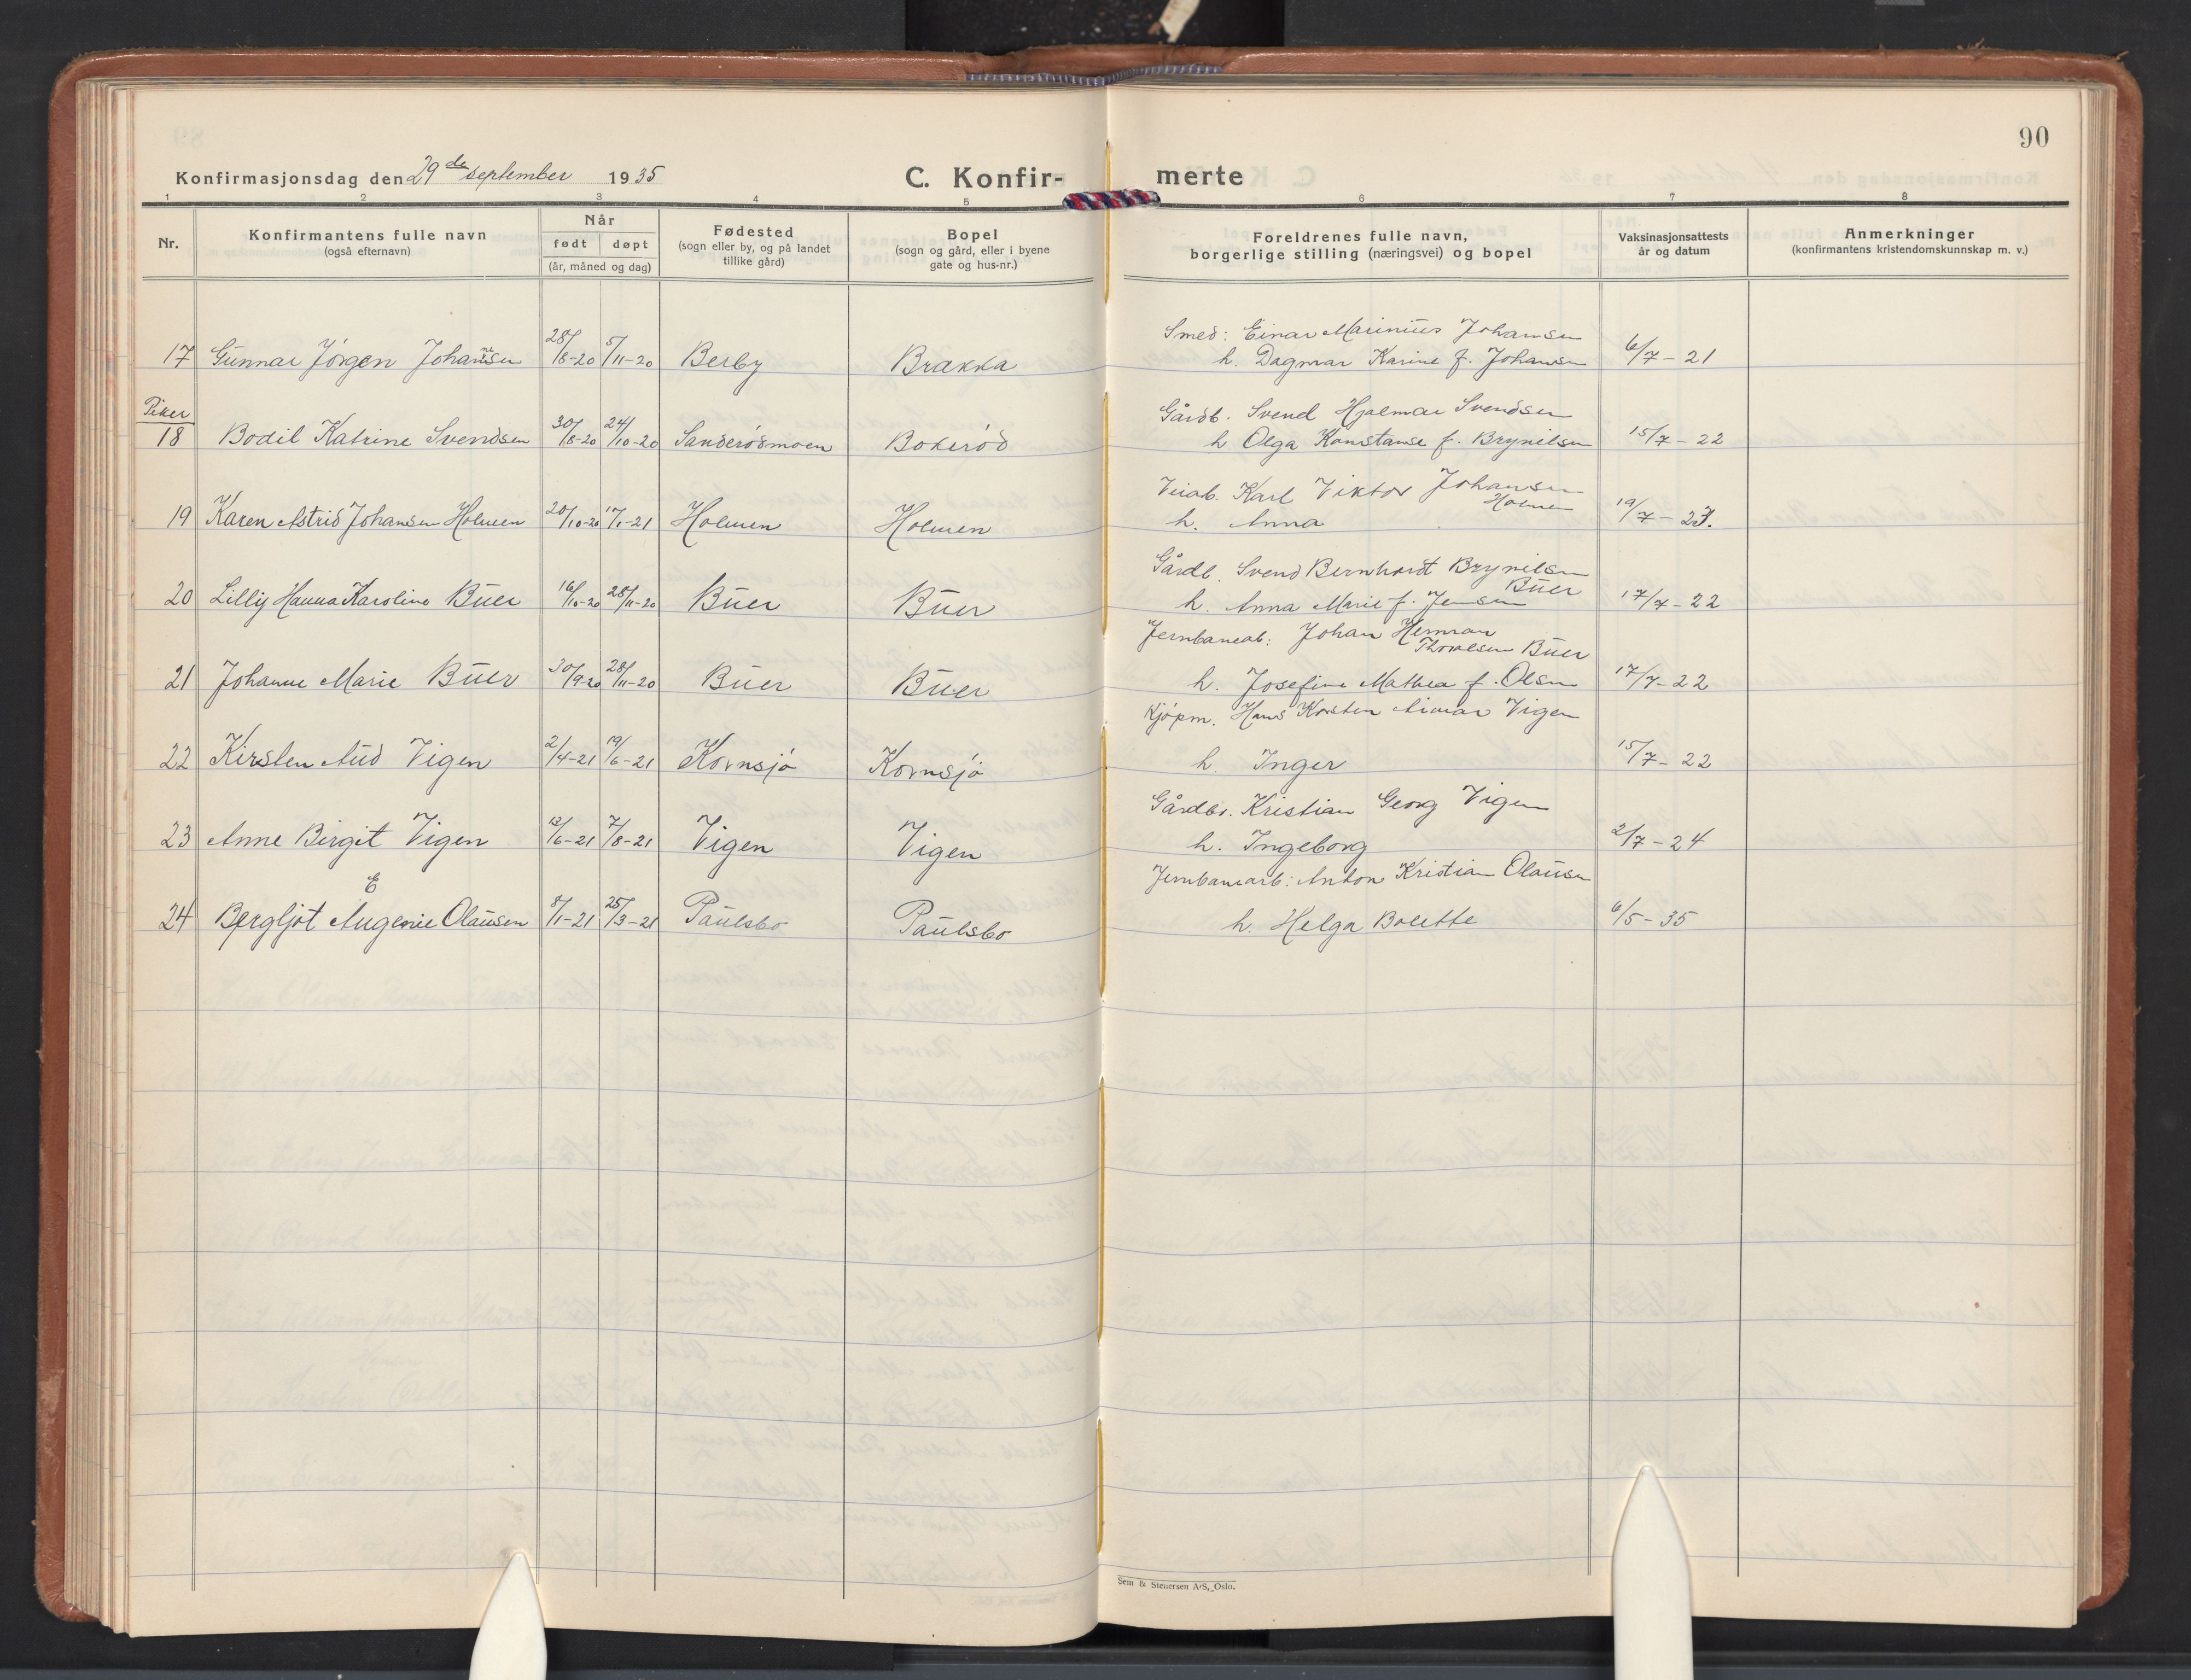 90
Konfirmasjonsdag den 29de september 1935
C. Konfir-merte
1 2 3 4 5 6 7 8
Nr.
Konfirmantens fulle navn
(også efternavn)
Når
født døpt
(år, måned og dag)
Fødested
(sogn eller by, og på landet
tillike gård)
Bopel
(sogn og gård, eller i byene
gate og hus-nr.)
Foreldrenes fulle navn,
borgerlige stilling (næringsvei) og bopel
Vaksinasjonsattests
år og datum
Anmerkninger
(konfirmantens kristendomskunnskap m. v.)
Smed: Einar Marinius Johansen
17 Gunnar Jörgen Johannesen 28/8-20 5/11-20 Berby Brakka h. Dagmar Karine f. Johansen 6/7-21
Piker
Gårdb. Svend Hjalmar Svendsen
18 Bodil Katrine Svendsen 30/8-20 24/10-20 Sanderödmoen Bokeröd h Olga Konstanse f. Brynilsen 15/7-22
Karl Viktor Johansen
Holmen
19 Karen Astrid Johansen Holmen 20/10-20 17/1-21 Holmen Holmen h. Anna 19/7-27.
Gårdb. Svend Bernhardt Brynilsen
Buer
20 Lilly Hanna Karoline Buer 16/10-20 28/11-20 Buer Buer h. Anna Marie f. Jensen 17/7-22
Jernbaneab: Johan Herman
Thoralsen Buer
21 Johanne Marie Buer 30/9-20 28/11-20 Buer Buer h. Josefine Mathea f. Olsen 17/7-22
Kjöpm. Hans Karsten Aimar Vigen
22 Kirsten Aud Vigen 2/4-21 19/6-21 Kornsjö Kornsjö h. Inger 15/7-22
Gårdbr. Kristian Georg Vigen
23 Anne Birgit Vigen 12/6-21 7/8-21 Vigen Vigen h. Ingeborg 2/7-24
Jernbanearb: Anton Kristian Olausen
E
24 Bergljot Augenie Olausen 8/1-21 25/3-21 Paulsbo Paulsbo h. Helga Bolette 6/5-35
Sem & Stenersen A/S, Oslo.